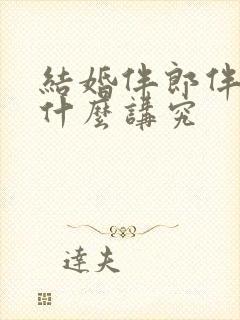 結婚伴郎伴
什麼講究
達夫